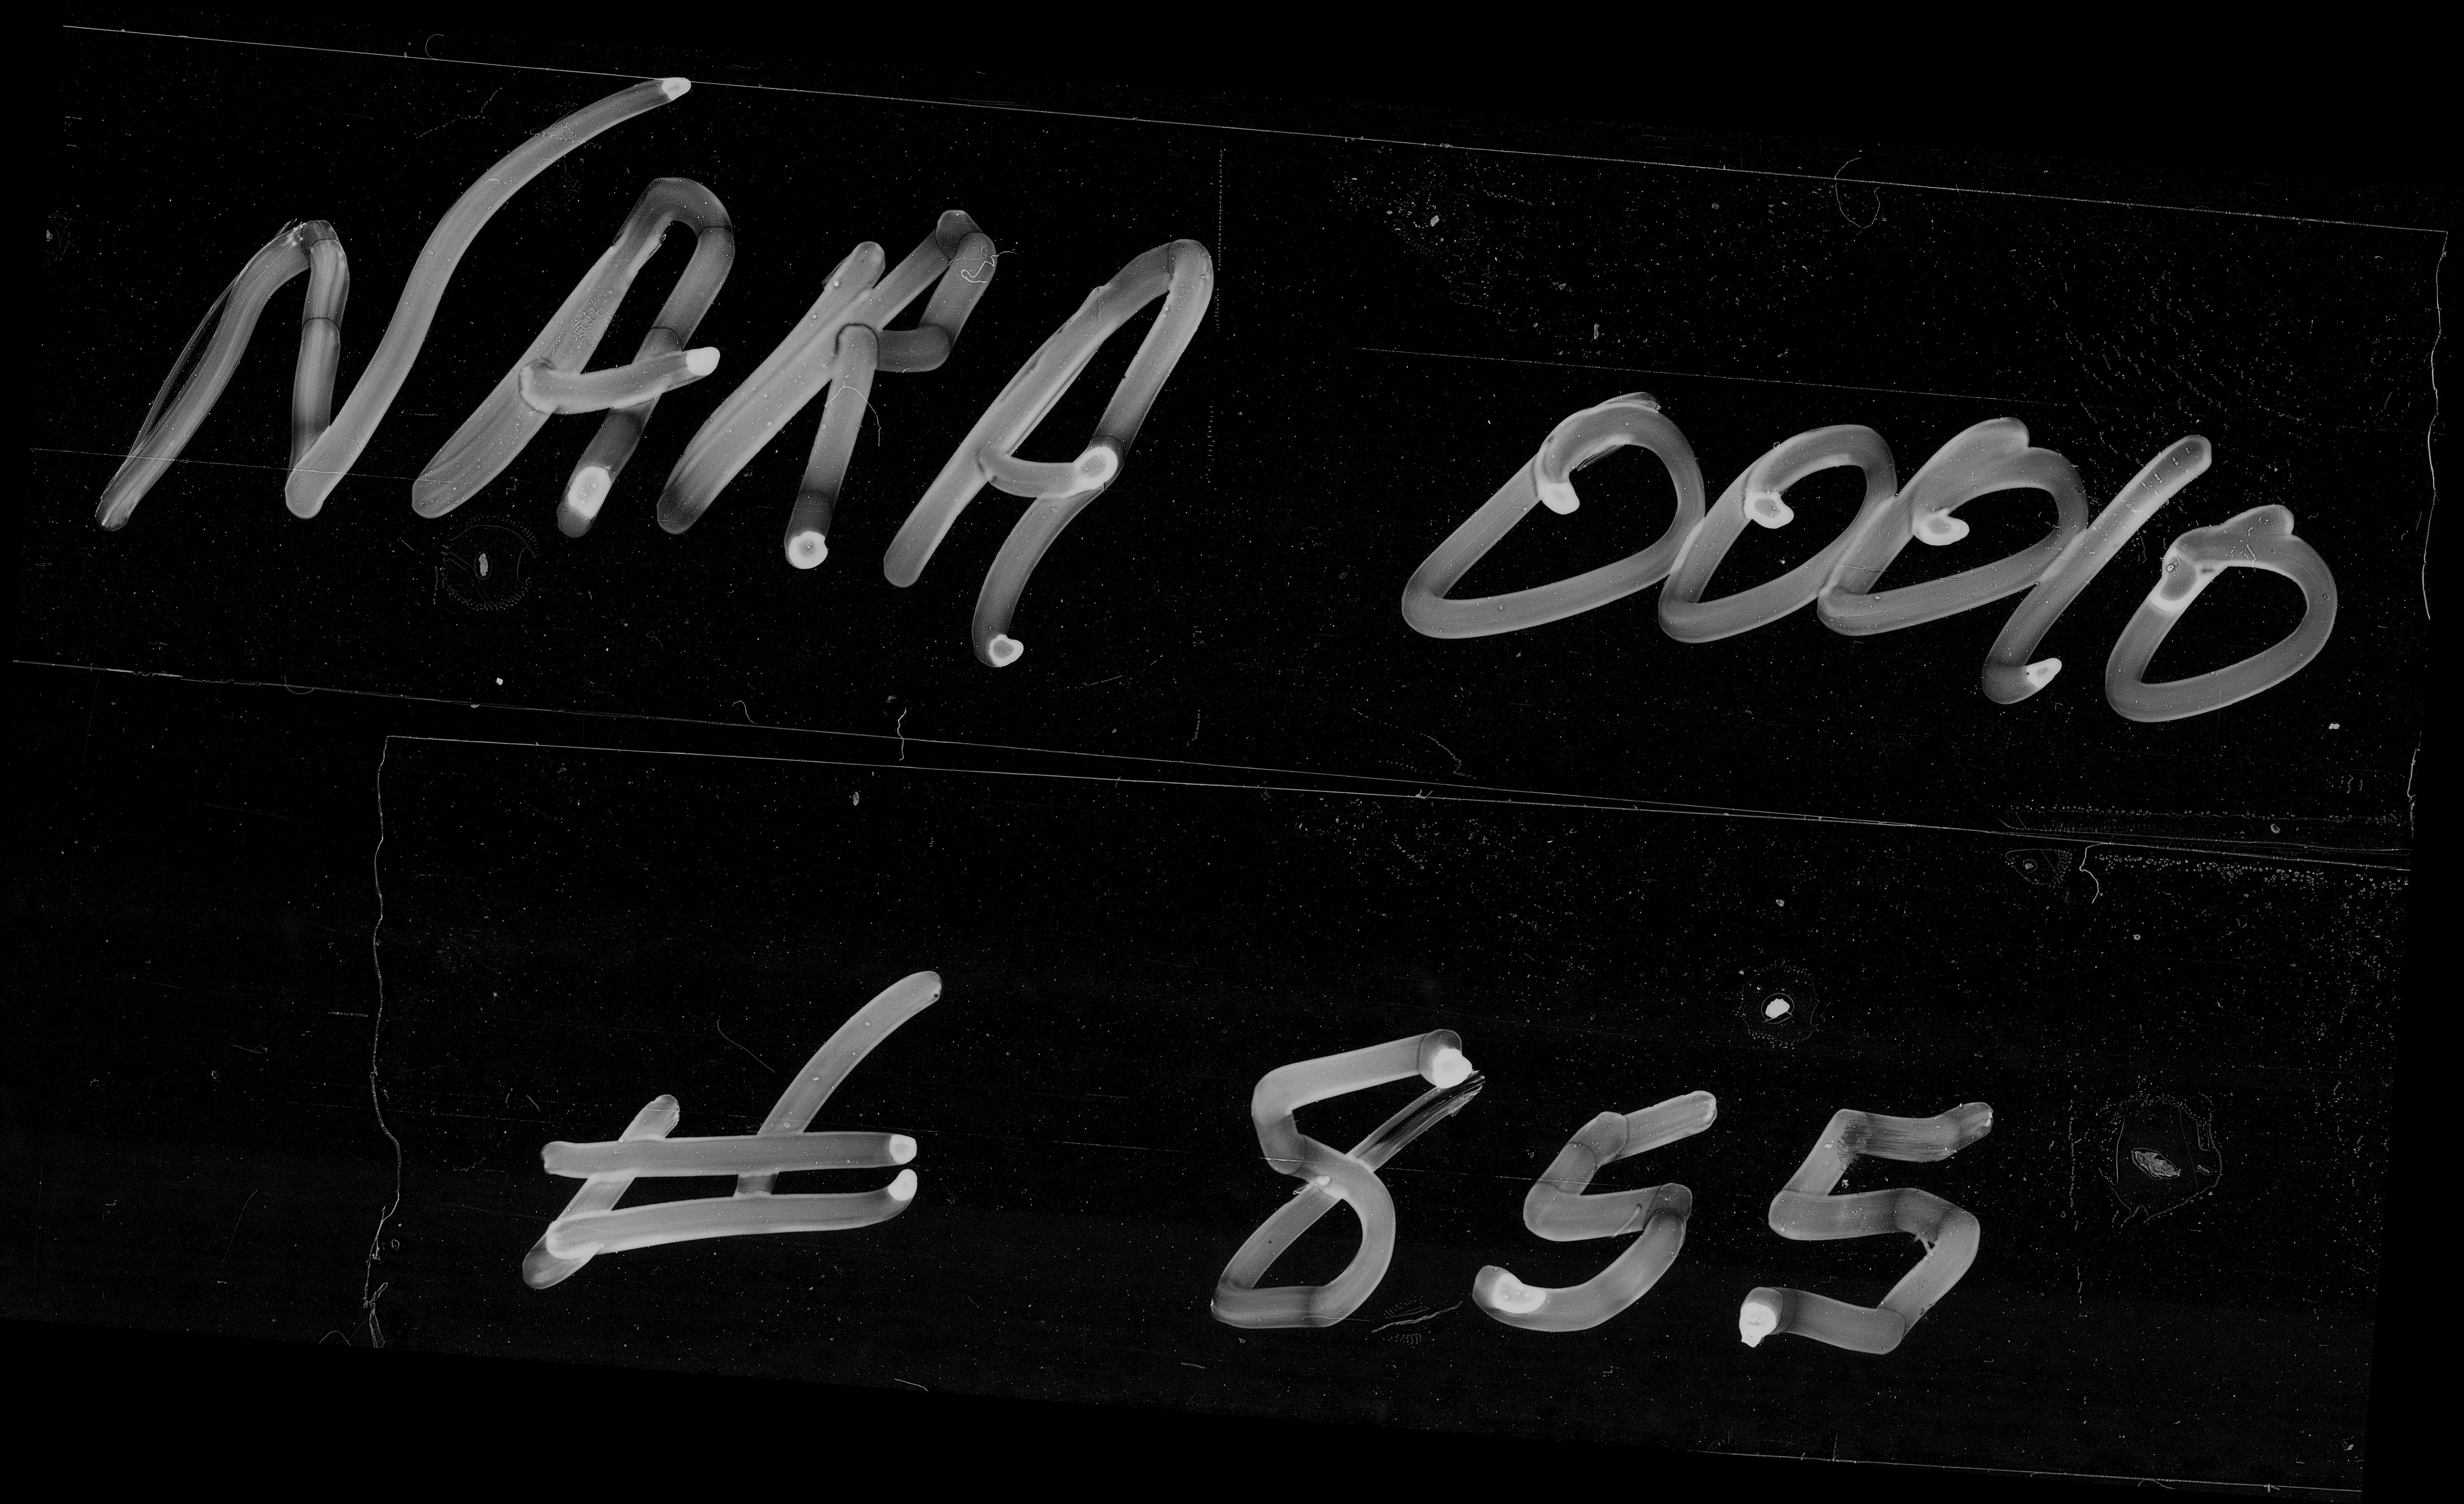 NARA 00010
# 855